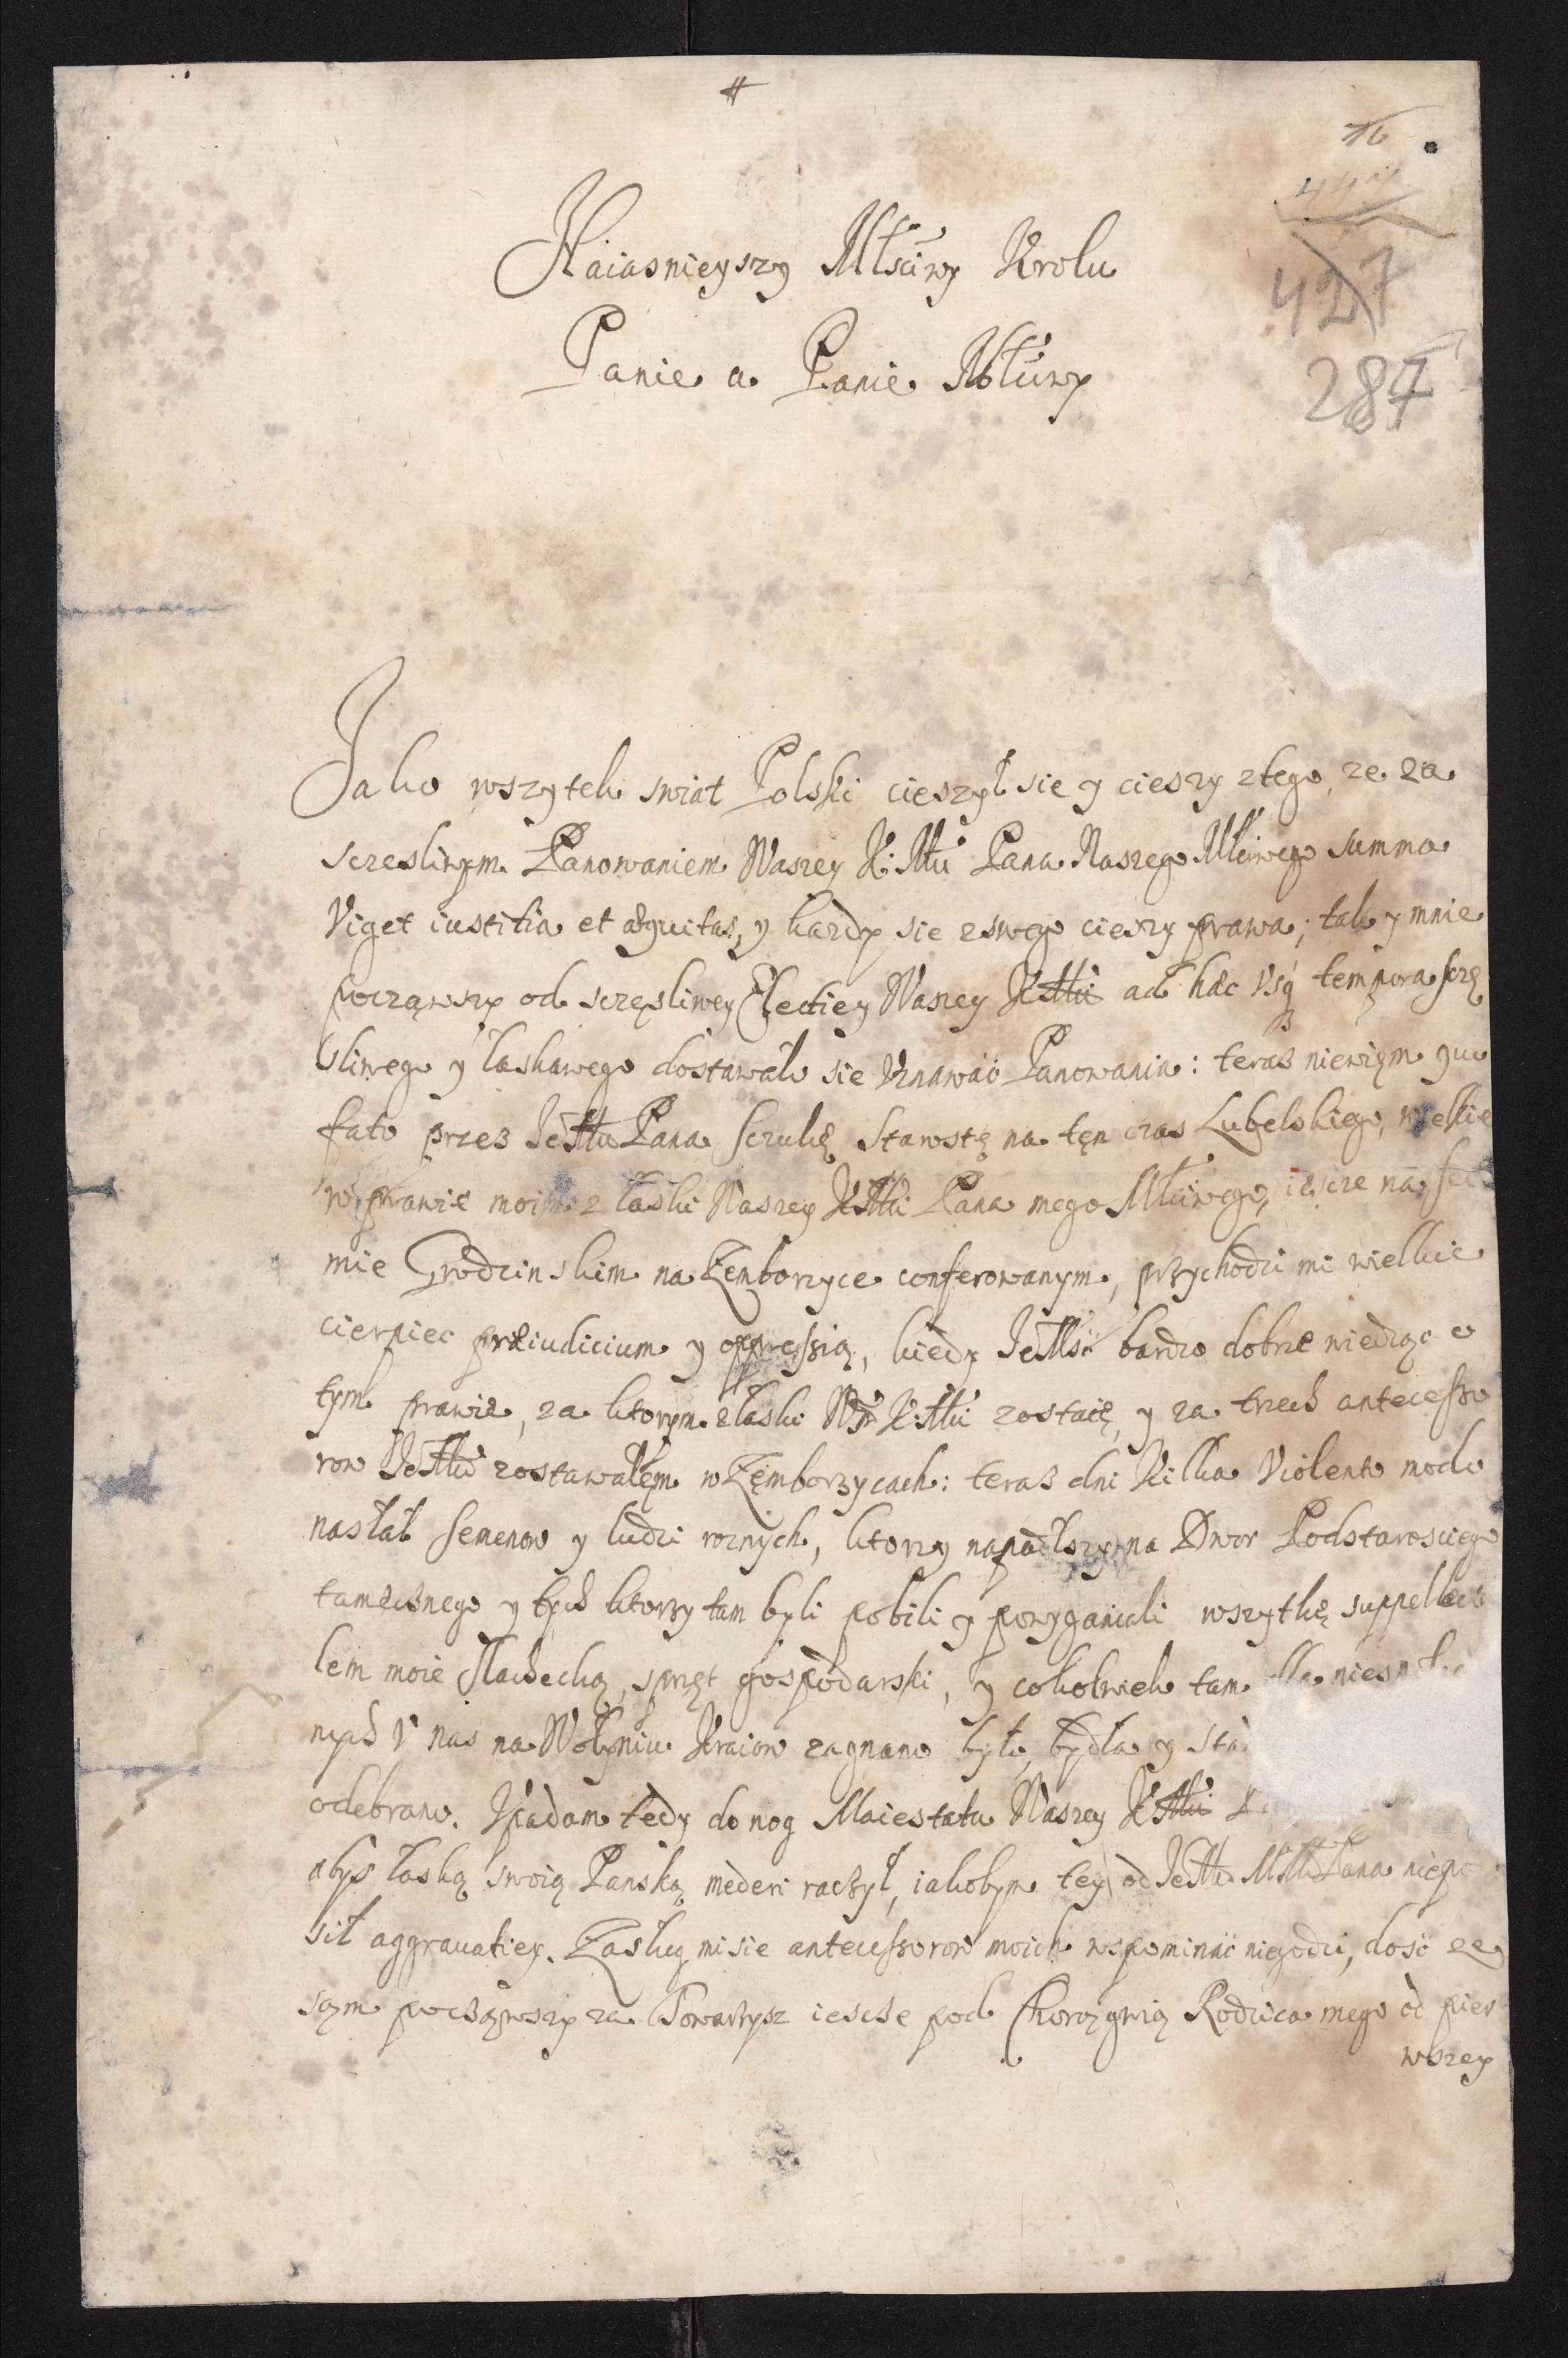 #
16
447
427
287
Naiasnieyszy Młsciwy Krolu
Panie a Panie Młciwy
Jako wszytek swiat Polski cieszył sie y cieszy ztego, ze za
sczesliwym Panowaniem Waszey K: Mci Pana Naszego Młciwego summa
Viget iustitia et æquitas, y kazdy sie zswego cieszy prawa; tak y mnie
począwszy od sczęsliwey Electiey Waszey KMci ad hæc Usq tempora sczę
sliwego y łaskawego dostawało sie Uznawać Panowania: teraz niewięm quo
fato przez JeMci Pana Sczukę Starostę na tęn czas Lubelskiego, wielkie
w prawie moim z łaski Waszey KMci Pana mego Młciwego, iescze na Sei
mie Grodzinskim na Zemborzyce conferowanym, przychodzi mi wielkie
cierpiec præiudicium y oppressią, kiedy JeMść bardzo dobrze wiedząc o
tym prawie, za ktorym z łaski Wm KMci zostaię, y za trzech antecesso
row JeMci zostawałęm w Zęmborzycach: teraz dni kilka Violento modo
nasłał Semenow y ludzi roznych, ktorzy napadłszy na Dwor Podstarosciego
tamecznego y tych ktorzy tam byli pobili y powyganiali wszytkę suppellec
lem moię slachecką, sprzęt gospodarski, y cokolwiek tam dla niesp
nych V nas na Wołyniu Kraiow zagnano było, bydła y sta
odebrano. Upadam tedy do nog Maiestatu Waszey KMci
abys łaską swoią Panską mederi raczył, iakobym tey od JeMci Pana niepo
sił aggrauatiey. Zasług mi sie antecessorow moich wspominać niegodzi, dosć ze
sąm począwszy za Towarzysz iescze pod Chorągwią Rodzica mego od pier
wszey